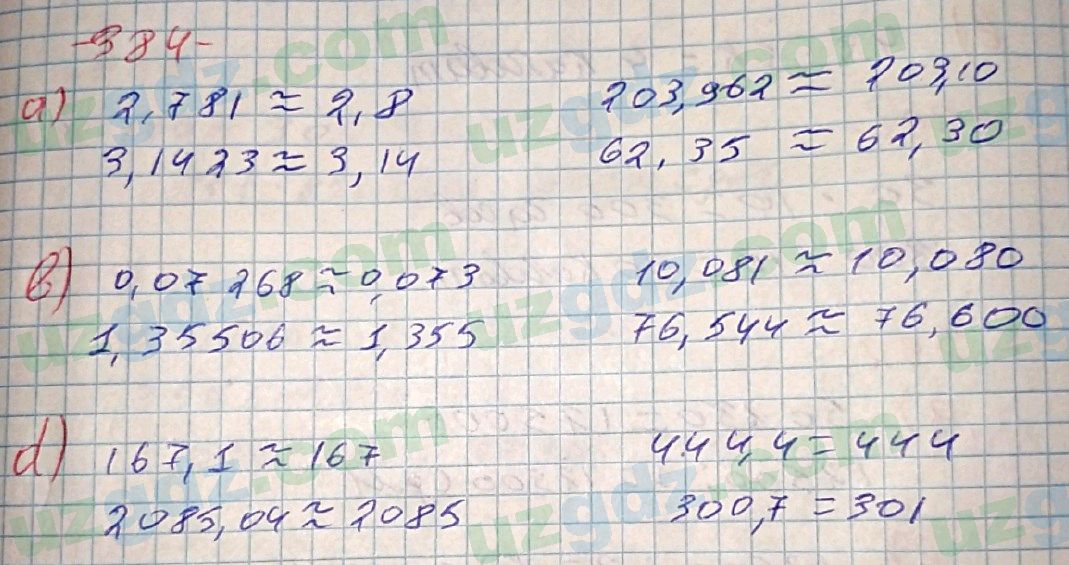 -384-
a) 2,781 ≈ 2,8 203,962 ≈ 203,10
3,1423 ≈ 3,14 62,35 ≈ 62,30
b) 0,07268 ≈ 0,073 10,081 ≈ 10,080
1,35506 ≈ 1,355 76,544 ≈ 76,600
d) 167,1 ≈ 167 444,4 = 444
2085,04 ≈ 2085 300,7 = 301
uzgdz.com